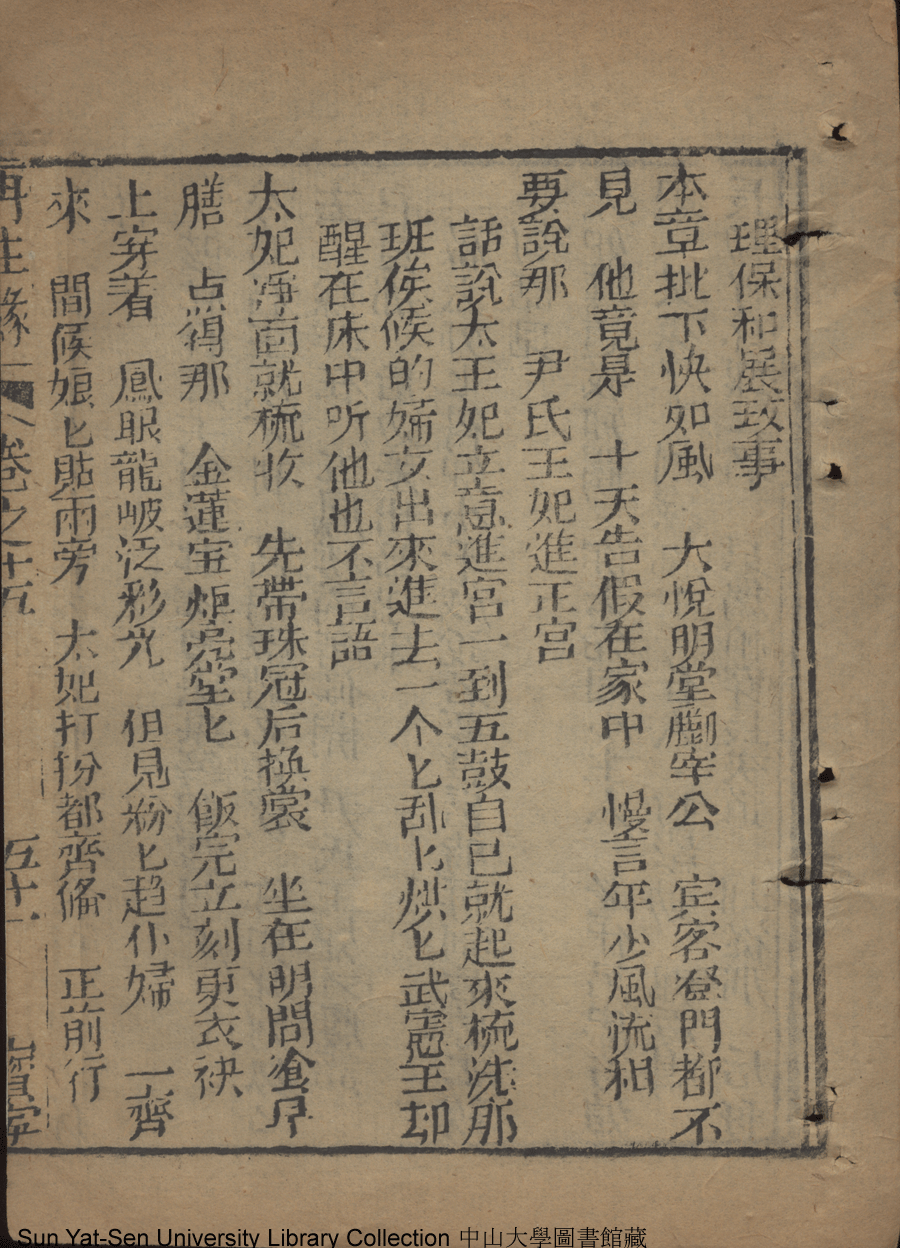 理保和展政事
本章批下快如風　大悅明堂酈宰公　定客登門都不
見　他竟是　十天告假在家中　慢言年少風流相
要說那　尹氏王妃進正宮
話說太王妃立意進宮一到五鼓自已就起來梳洗那
班俟候的婦女出來進去一个匕乱匕烘匕武憲王却
醒在床中听他也不言語
太妃凈面就梳妆　先帶珠冠后换裳　坐在明間飡早
膳　点得那　金蓮宝炬亮堂匕　飯完立刻更衣袂
上穿着　鳳眼龍岥泛彩光　但見粉匕趋仆婦　一齊
來　間候娘匕貼兩旁　太妃打扮都齊俻　正前行
再生緣　卷之十五　五十一　寶寧
Sun Yat-Sen University Library Collection 中山大學圖書館藏